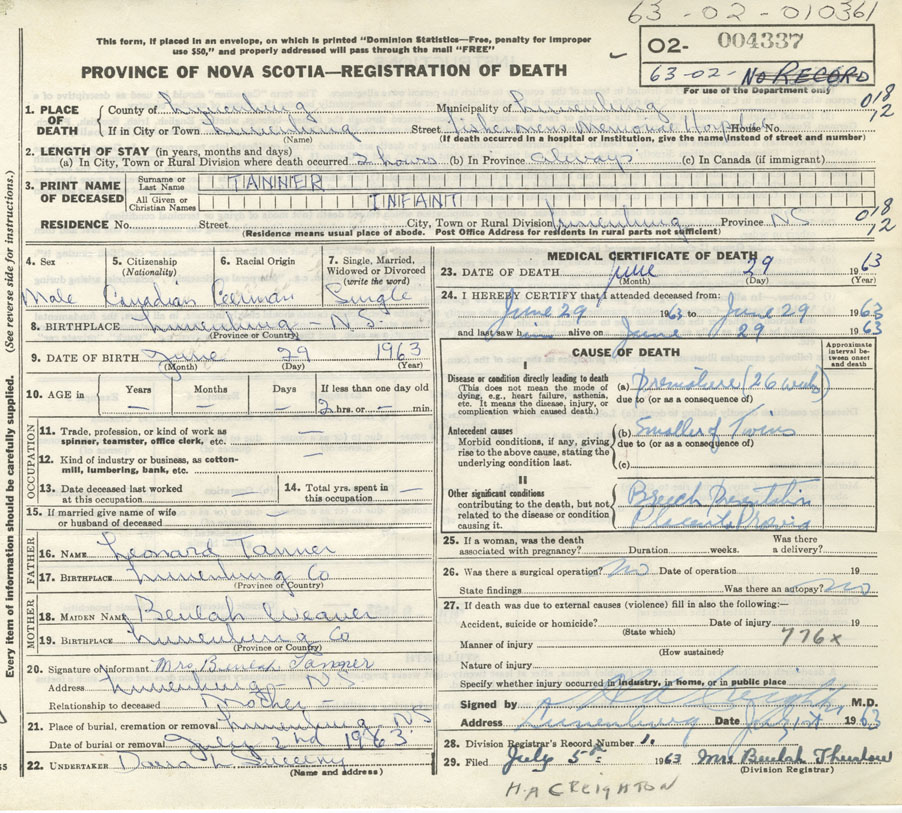 63-02-010361
This form, if placed in an envelope, on which is printed "Dominion Statistics—Free, penalty for improper
use $50," and properly addressed will pass through the mail "FREE"
02- 004337
PROVINCE OF NOVA SCOTIA—REGISTRATION OF DEATH
63-02- No RECORD
For use of the Department only
1. PLACE OF DEATH
County of Lunenburg Municipality of Lunenburg 018
If in City or Town Lunenburg Street Fishermens Memorial Hospital House No. 12
(Name) (If death occurred in a hospital or institution, give the name instead of street and number)
2. LENGTH OF STAY (in years, months and days)
(a) In City, Town or Rural Division where death occurred 2 hours (b) In Province always (c) In Canada (if immigrant)
3. PRINT NAME OF DECEASED
Surname or Last Name TANNER
All Given or Christian Names INFANT
RESIDENCE No. Street City, Town or Rural Division Lunenburg Province NS 018
(Residence means usual place of abode. Post Office Address for residents in rural parts not sufficient) 12
4. Sex 5. Citizenship (Nationality) 6. Racial Origin 7. Single, Married, Widowed or Divorced (write the word)
Male Canadian German Single
8. BIRTHPLACE Lunenburg - N.S.
(Province or Country)
9. DATE OF BIRTH June 29 1963
(Month) (Day) (Year)
10. AGE in Years Months Days If less than one day old
— — — 2 hrs. or — min.
OCCUPATION
11. Trade, profession, or kind of work as spinner, teamster, office clerk, etc. —
12. Kind of industry or business, as cotton-mill, lumbering, bank, etc. —
13. Date deceased last worked at this occupation — 14. Total yrs. spent in this occupation —
15. If married give name of wife or husband of deceased —
FATHER
16. NAME Leonard Tanner
17. BIRTHPLACE Lunenburg Co
(Province of Country)
MOTHER
18. MAIDEN NAME Beulah Weaver
19. BIRTHPLACE Lunenburg Co
(Province or Country)
20. Signature of informant Mrs Beulah Tanner
Address Lunenburg NS
Relationship to deceased Mother -
21. Place of burial, cremation or removal Lunenburg NS
Date of burial or removal July 2nd 1963
22. UNDERTAKER
(Name and address)
MEDICAL CERTIFICATE OF DEATH
23. DATE OF DEATH June 29 1963
(Month) (Day) (Year)
24. I HEREBY CERTIFY that I attended deceased from:
June 29 1963 to June 29 1963
and last saw him alive on June 29 1963
CAUSE OF DEATH
Approximate interval between onset and death
I
Disease or condition directly leading to death
(This does not mean the mode of dying, e.g., heart failure, asthenia, etc. It means the disease, injury, or complication which caused death.)
(a) Premature (26 weeks)
due to (or as a consequence of)
Antecedent causes
Morbid conditions, if any, giving rise to the above cause, stating the underlying condition last.
(b) Smaller of Twins
due to (or as a consequence of)
(c)
II
Other significant conditions
contributing to the death, but not related to the disease or condition causing it.
Breech Presentation
Placenta Previa
25. If a woman, was the death associated with pregnancy? Duration weeks. Was there a delivery?
26. Was there a surgical operation? no Date of operation 19
State findings Was there an autopsy? no
27. If death was due to external causes (violence) fill in also the following:—
Accident, suicide or homicide? Date of injury 19
(State which)
776x
Manner of injury
(How sustained)
Nature of injury
Specify whether injury occurred in industry, in home, or in public place
Signed by HA Creighton M.D.
Address Lunenburg Date July 1st 1963
28. Division Registrar's Record Number 1.
29. Filed July 5th 1963 Mrs Beulah Thurlow
(Division Registrar)
H.A CREIGHTON
Every item of information should be carefully supplied. (See reverse side for instructions.)